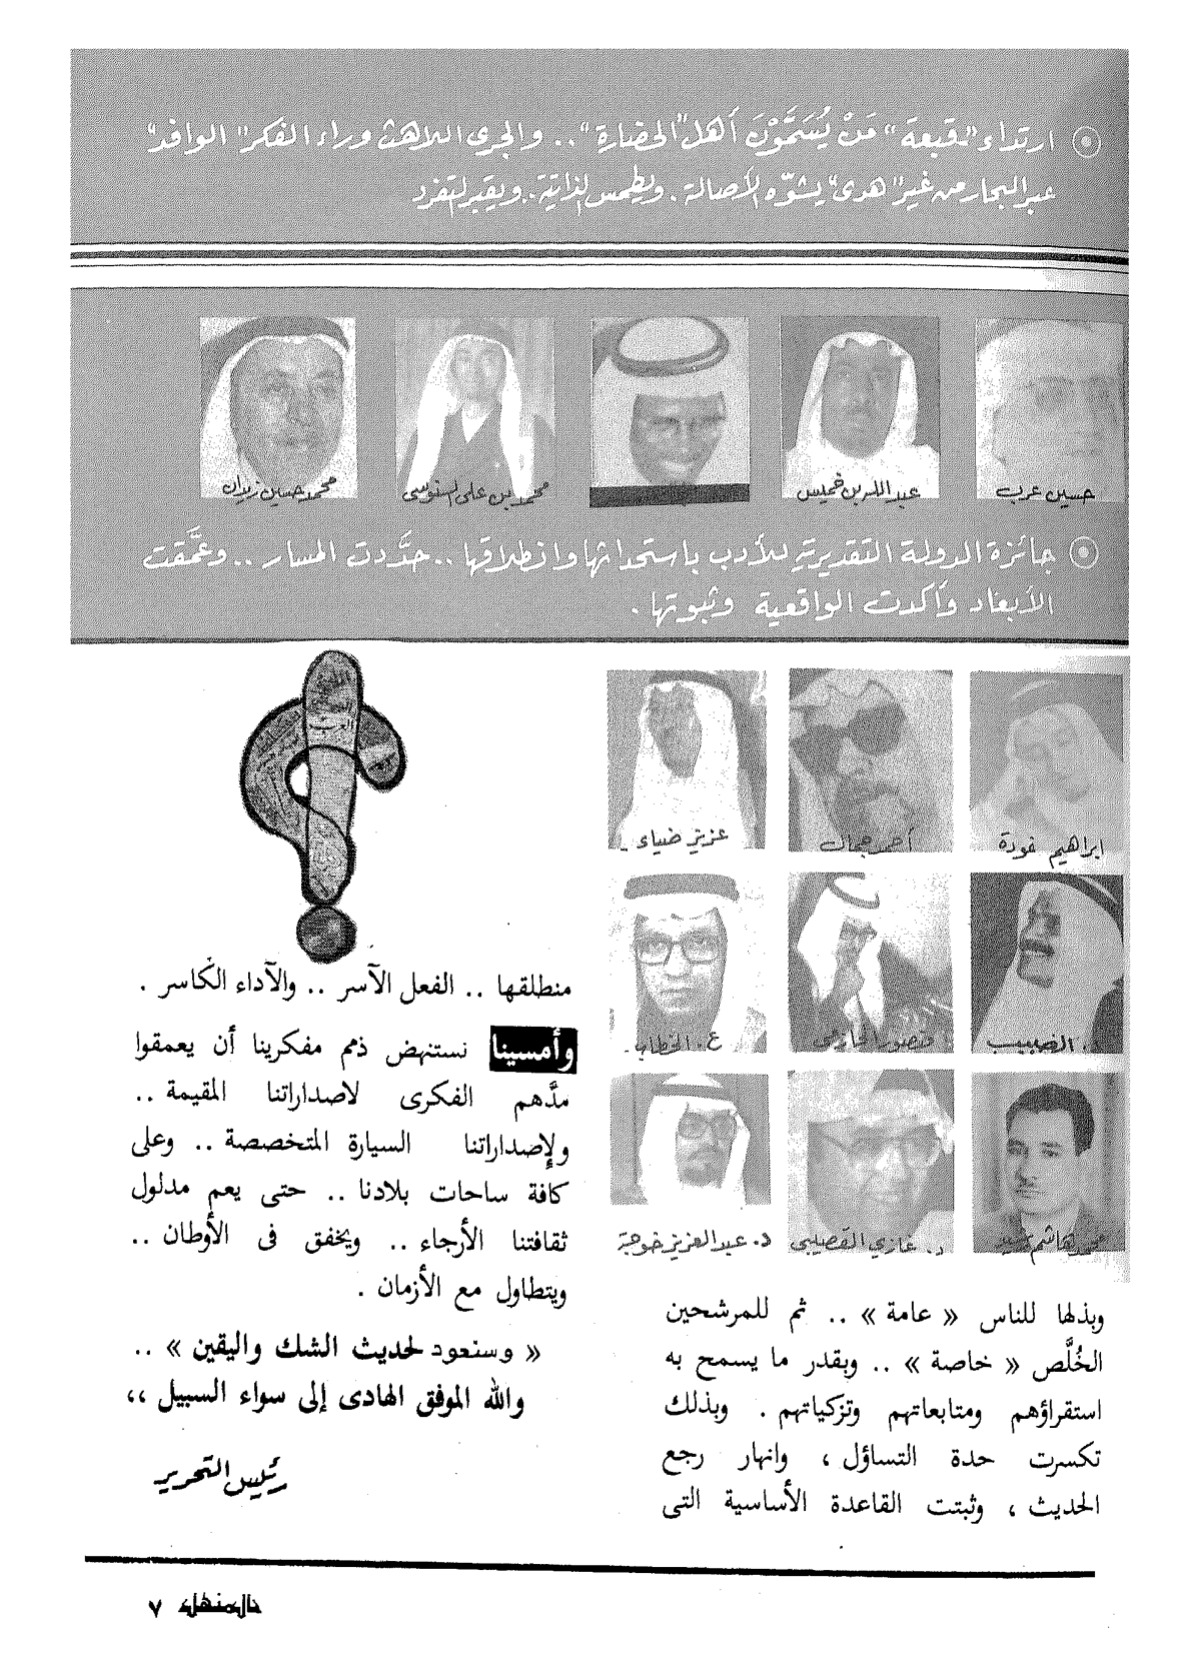 ارتداء "قبعة" مَنْ يُسَمَّوْنَ أهل "الحضارة".. والجرى اللاهث وراء الفكر "الوافد"
عبر البحار من غير "هدى" يشوّه الأصالة . ويطمس الذاتية.. ويقبر التفرد
حسين عرب
عبد الله بن خميس
محمد بن على السنوسى
محمد حسين زيدان
جائزة الدولة التقديرية للأدب باستحداثها وانطلاقها .. حدَّدت المسار .. وعمَّقت
الأبعاد وأكدت الواقعية وثبوتها .
ابراهيم فودة
أحمد جمال
عزيز ضياء
د. الضبيب
منصور الحازمي
ع . الخطاب
محمد هاشم رشيد
د. غازي القصيبي
د. عبد العزيز خوجة
وبذلها للناس « عامة » .. ثم للمرشحين
الخُلَّص « خاصة » .. وبقدر ما يسمح به
استقراؤهم ومتابعاتهم وتزكياتهم . وبذلك
تكسرت حدة التساؤل ، وانهار رجع
الحديث ، وثبتت القاعدة الأساسية التى
منطلقها .. الفعل الآسر .. والآداء الكاسر .
وأمسينا نستنهض ذمم مفكرينا أن يعمقوا
مدَّهم الفكرى لاصداراتنا المقيمة ..
ولإصداراتنا السيارة المتخصصة .. وعلى
كافة ساحات بلادنا .. حتى يعم مدلول
ثقافتنا الأرجاء .. ويخفق فى الأوطان ..
ويتطاول مع الأزمان .
« وسنعود لحديث الشك واليقين » ..
والله الموفق الهادى إلى سواء السبيل ،،
رئيس التحرير
المنهل ٧